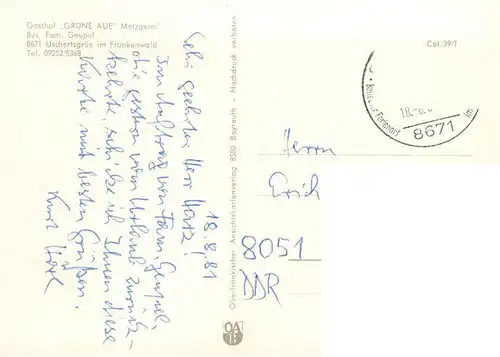 Gasthof „GRÜNE AUE" Metzgerei
Bes. Fam. Geupel
8671 Uschertsgrün im Frankenwald
Tel. 09252/5368
Cat. 39/1
18.8.81
Sehr geehrter Herr
Im Auftrag von Fam. Geupel,
die gestern vom Urlaub zurück-
kehrte, schicke ich Ihnen diese
Karte mit besten Grüßen.
Kurt
Oberfränkischer Ansichtskartenverlag 8580 Bayreuth – Nachdruck verboten
8671
Herrn
Erich
8051
DDR